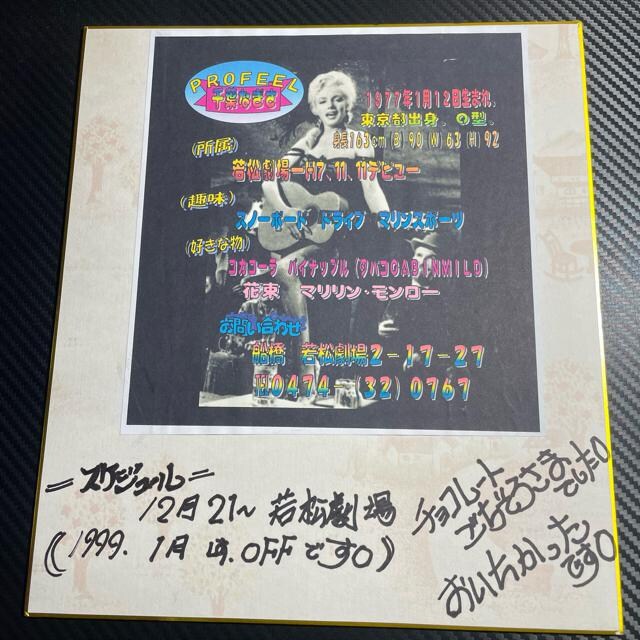 PROFEEL
千葉なぎさ
1977年1月12日生まれ。
東京都出身。O型。
身長163cm (B) 90 (W) 63 (H) 92
(所属)
若松劇場—H7、11、11デビュー
(趣味)
スノーボート ドライブ マリンスポーツ
(好きな物)
コカコーラ パイナップル (タバコCABINMILD)
花束 マリリン・モンロー
お問い合わせ
船橋 若松劇場2-17-27
℡0474-(32)0767
=スケジュール=
12月21~ 若松劇場
(1999. 1月は.OFFです。)
チョコレート
ごちそうさま
でした。
おいちかった
です。